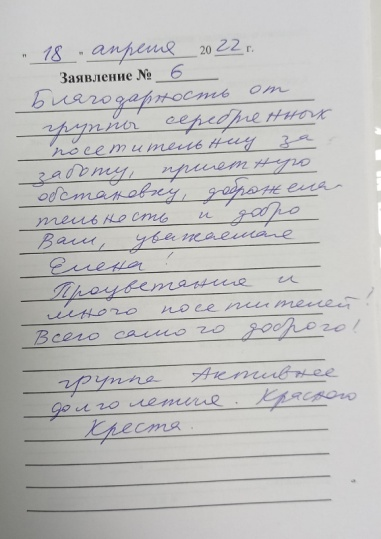 " 18 " апреля 2022 г.
Заявление № 6
Благодарность от
группы серебренных
посетительниц за
заботу, приятную
обстановку, доброжела-
тельность и добро
Вам, уважаемая
Елена!
Процветания и
много посетителей!
Всего самого доброго!
группа Активное
долголетие. Красного
Креста.